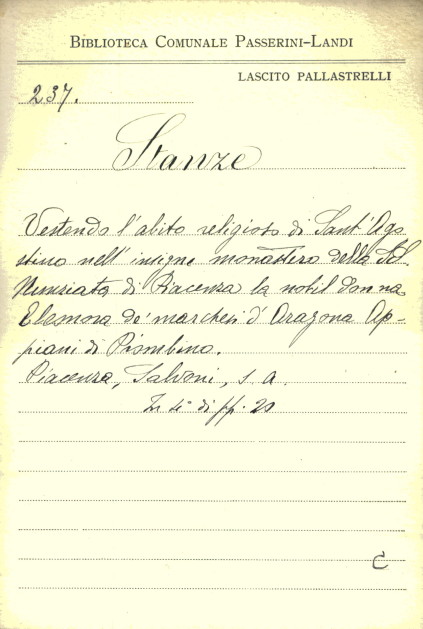 BIBLIOTECA COMUNALE PASSERINI-LANDI
LASCITO PALLASTRELLI
237.
Stanze
Vestendo l'abito religioso di Sant'Ago-
stino nell'insigne monastero della SS.
Nunziata di Piacenza la nobil donna
Eleonora de' marchesi d'Aragona Ap-
piani di Piombino.
Piacenza, Salvoni, s. a.
In 4° di pp. 20
C